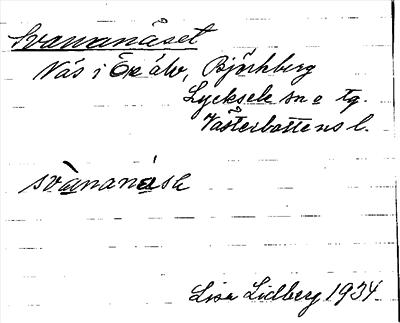 Svananäset
Näs i Öreälv, Björkberg
Lycksele sn o tg.
Västerbottens l.
svànanásɛ
Lisa Lidberg 1934